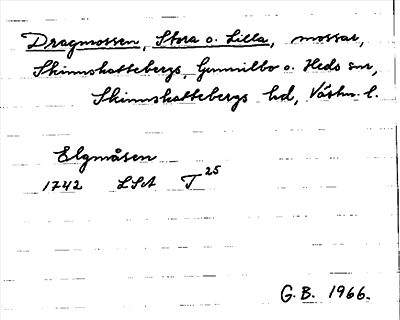 Dragmossen, Stora o. Lilla, mossar,
Skinnskattebergs, Gunnilbo o. Heds snr,
Skinnskattebergs hd, Västm. l.
Elgmåsen
1742 LSA T 25
G. B. 1966.